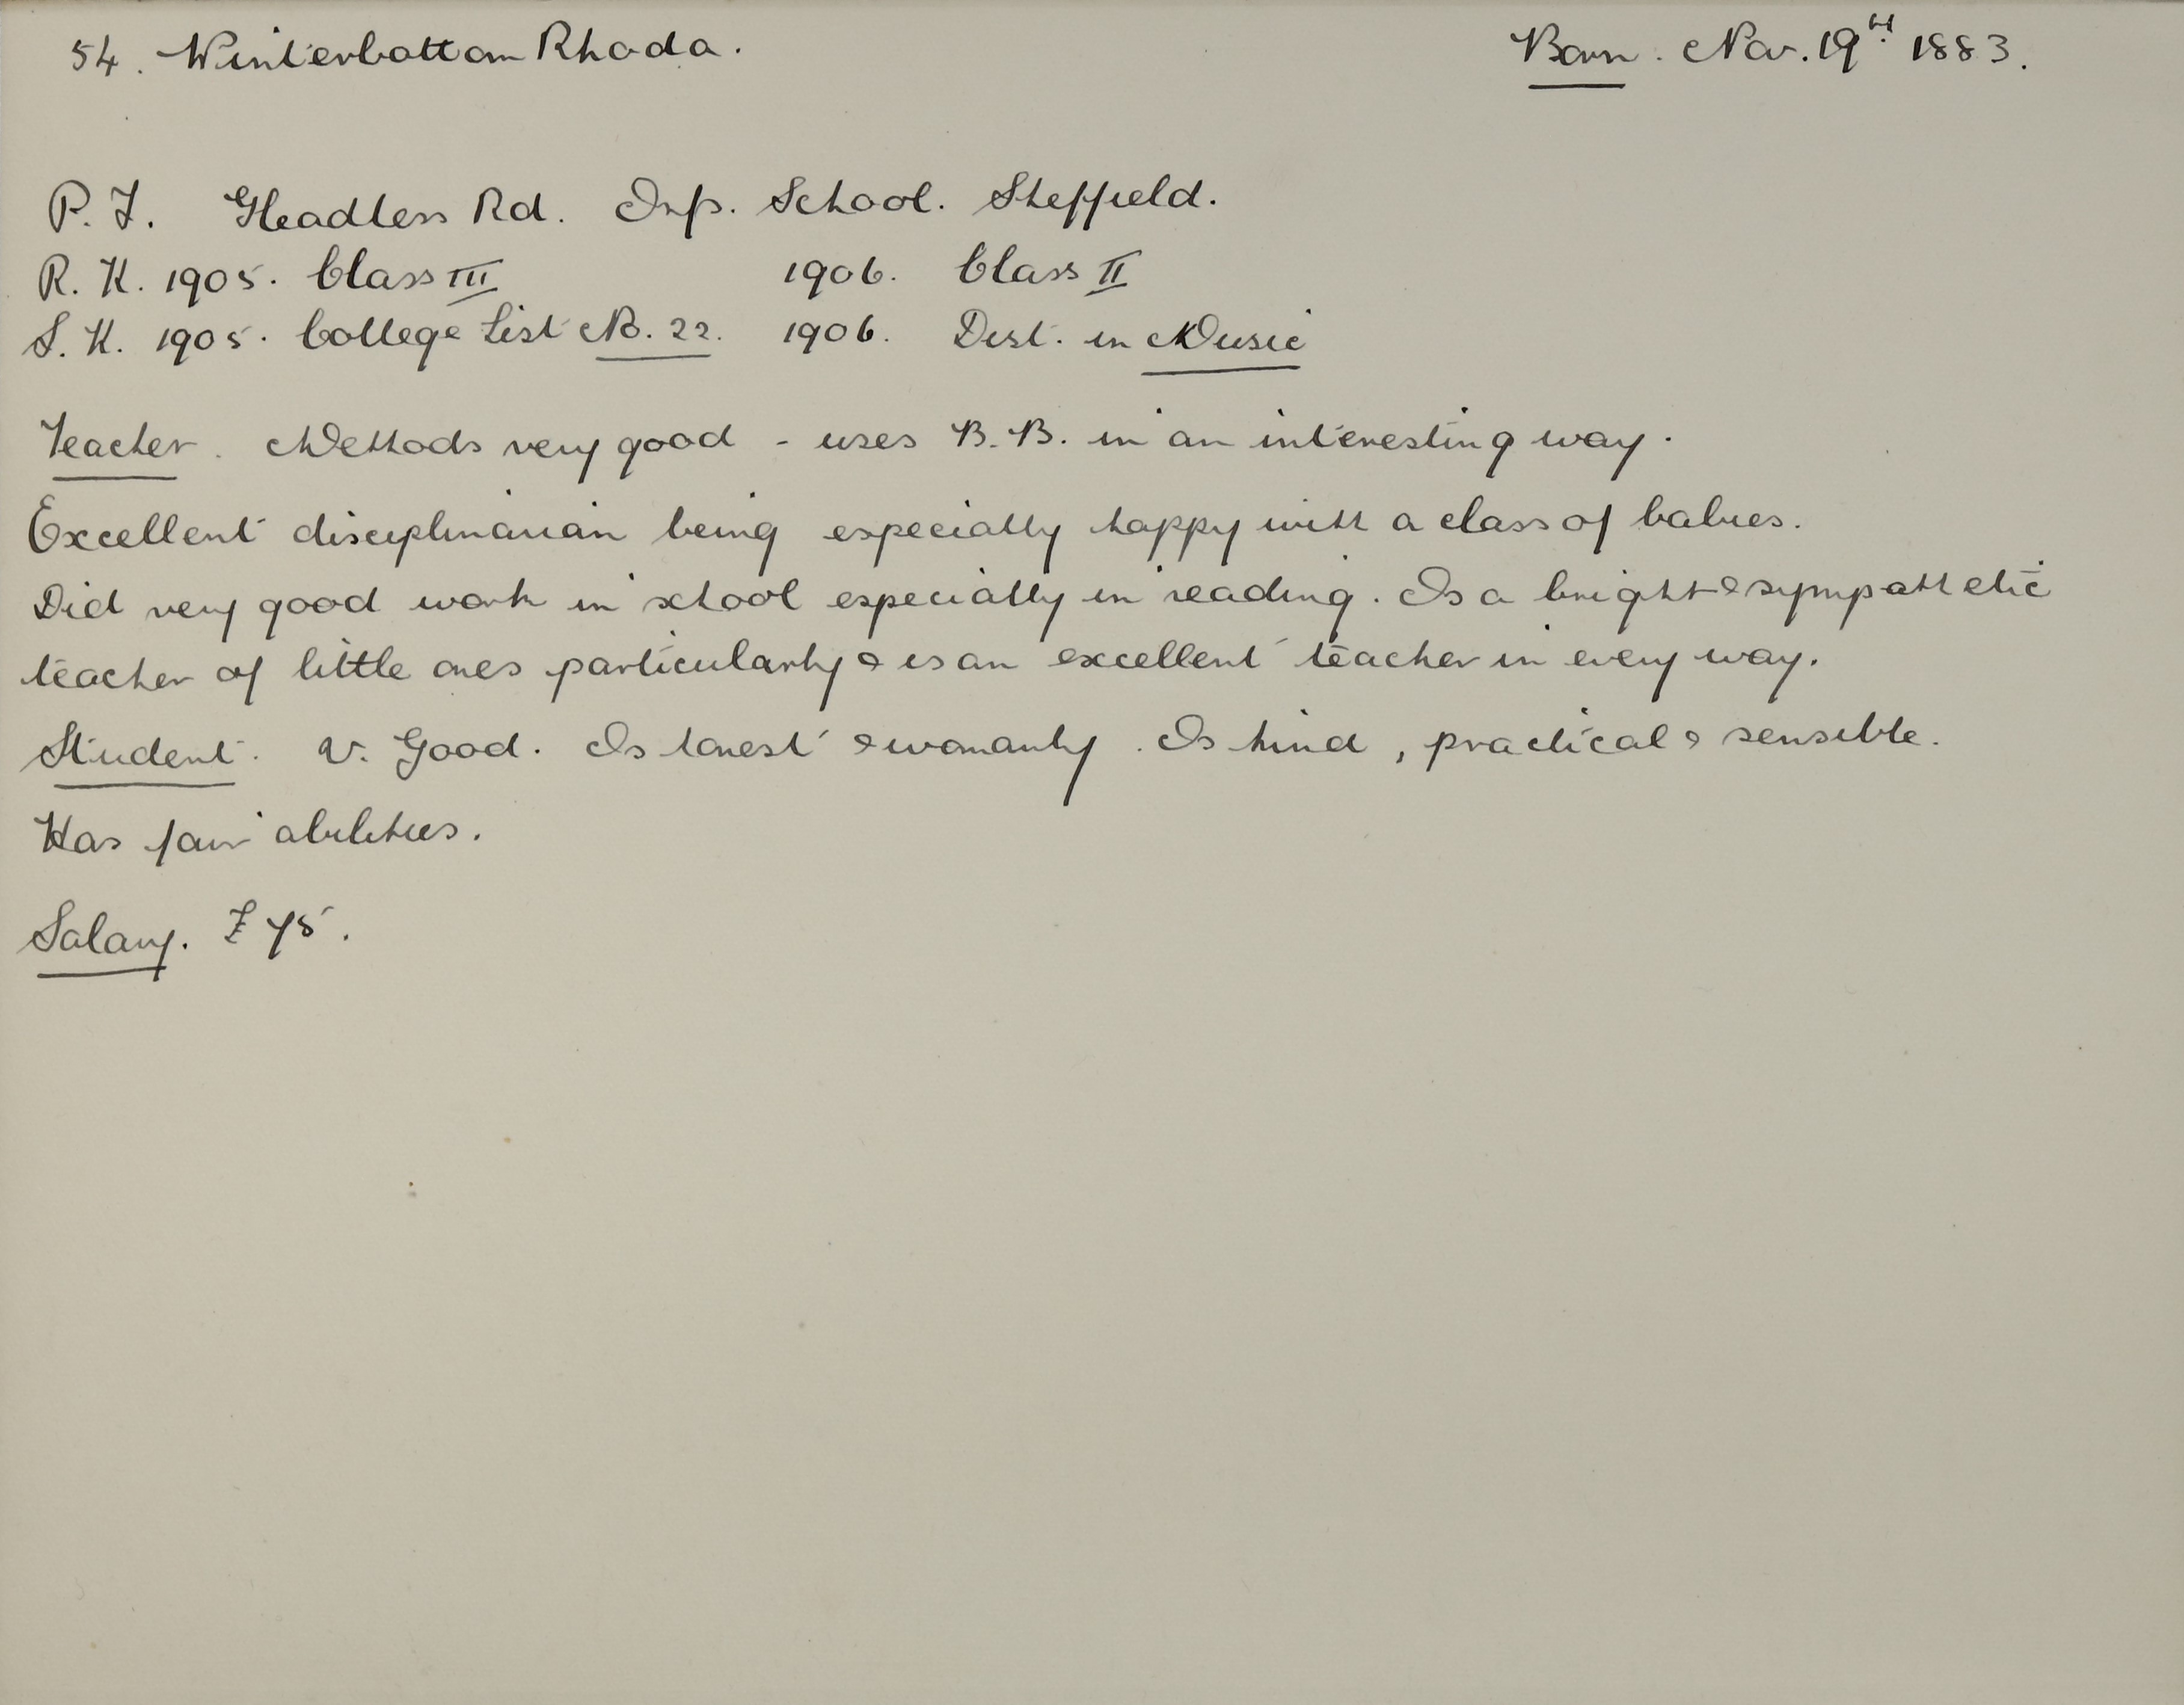 54. Winterbottom Rhoda.
Born. Nov. 19th 1883.
P. T. Gleadless Rd. Inf. School. Sheffield.
R. K. 1905. Class III 1906. Class II
S. K. 1905. College List No. 22. 1906. Dist. in Music
Teacher. Methods very good - uses B.B. in an interesting way.
Excellent disciplinarian being especially happy with a class of babies.
Did very good work in school especially in reading. Is a bright & sympathetic
teacher of little ones particularly & is an excellent teacher in every way.
Student. V. Good. Is honest & womanly. Is kind, practical & sensible.
Has fair abilities.
Salary. £75.